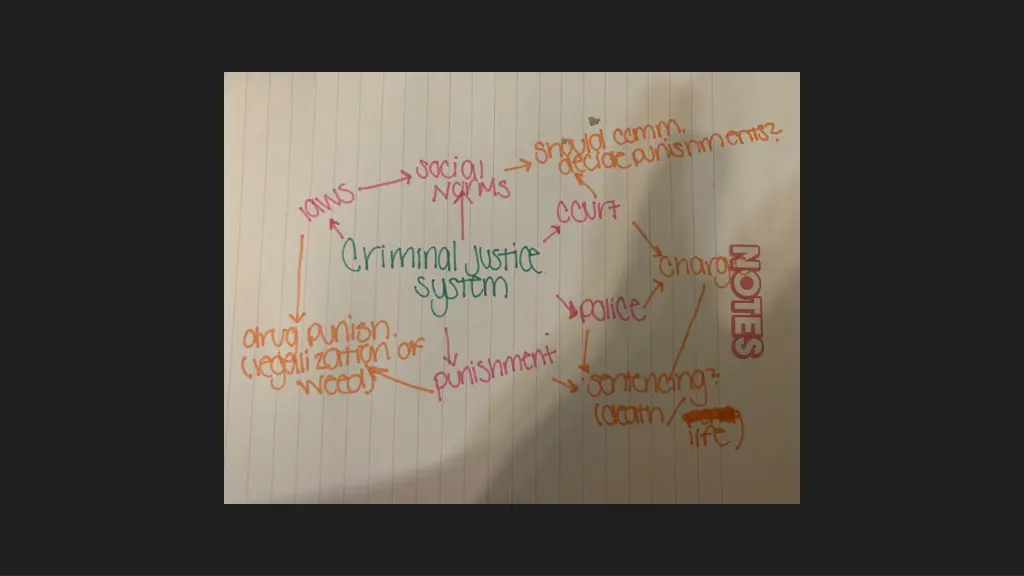 should comm.
decide punishments?
social
norms
laws
court
Criminal justice
system
charg
NOTES
police
drug punish.
(legalization of
weed)
punishment
sentencing?
(death/
life)